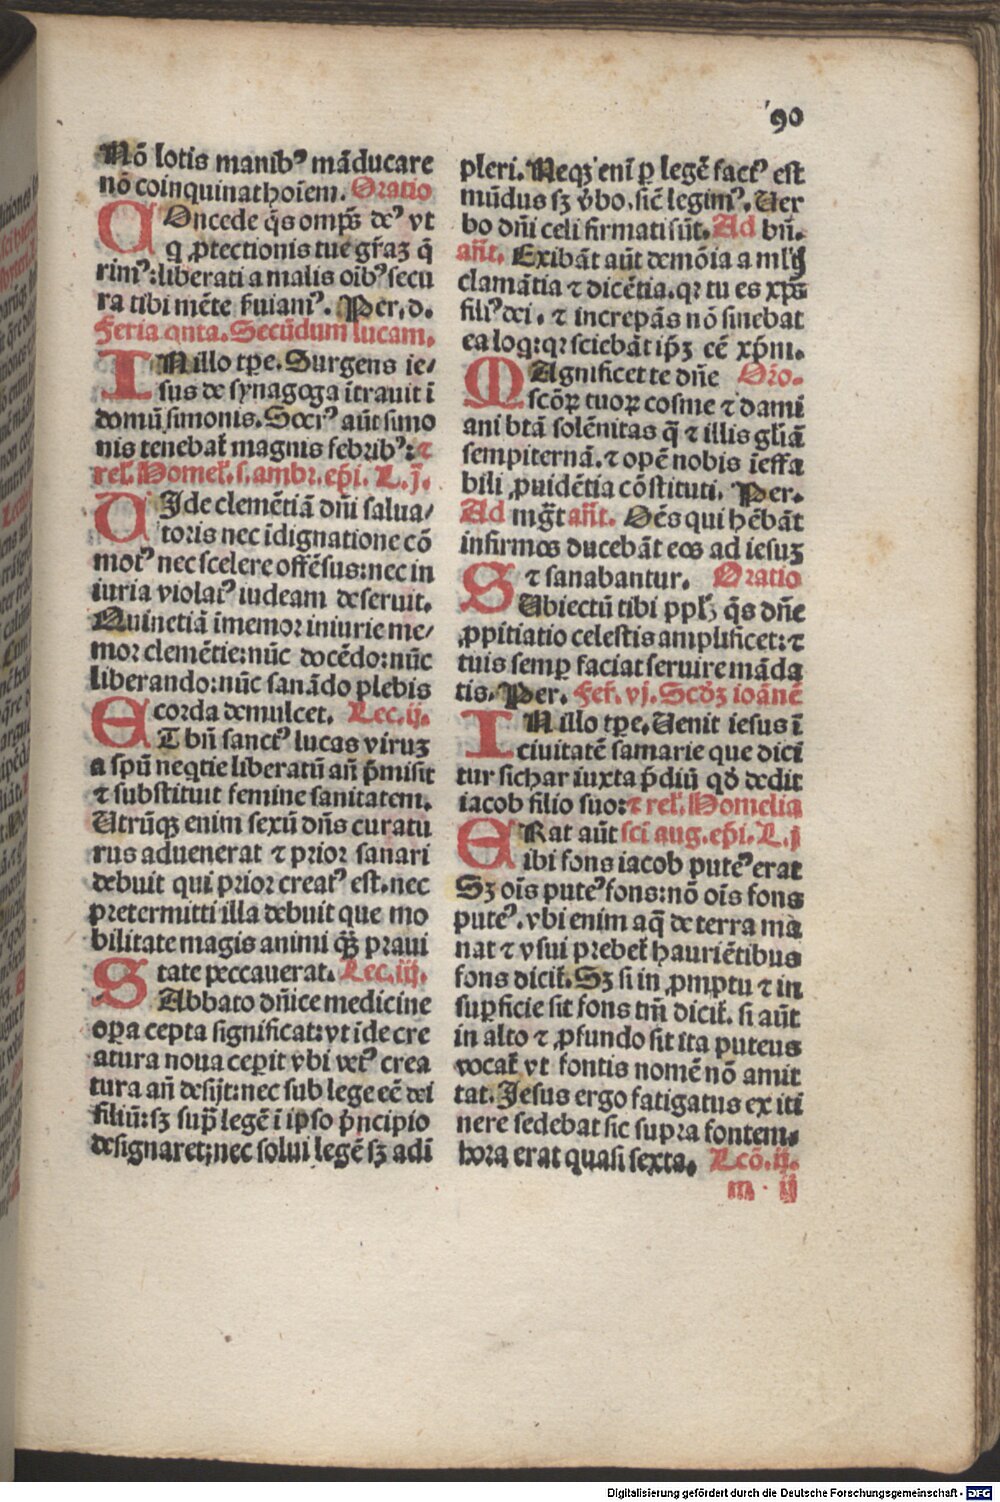 90
Nō lotis manibꝰ māducare
nō coinquinat hoīem. Oratio
COncede q̄s omp̄s deꝰ vt
q ꝓtectionis tue gr̄aꝫ q̄
rimꝰ: liberati a malis oībꝰ secu
ra tibi mēte ẜuiamꝰ. Per. d.
Feria qnta. Secūdum lucam.
IN illo tꝑe. Surgens ie/
sus de synagoga ītrauit ī
domū simonis. Socrꝰ aūt simo
nis tenebat᷑ magnis febribꝰ: ⁊
rel̕. Homel̕. s. ambr. ep̄i. L. j.
UIde clemētiā dn̄i salua/
toris nec īdignatione cō
motꝰ nec scelere offēsus: nec in
iuria violatꝰ iudeam deseruit.
Quinetiā īmemor iniurie me/
mor clemētie: nūc docēdo: nūc
liberando: nūc sanādo plebis
corda demulcet. Lec. ij.
ET bn̄ sanctꝰ lucas viruꝫ
a spū neqtie liberatū an̄ p̄misit
⁊ substituit femine sanitatem.
Utrūqꝫ enim sexū dn̄s curatu
rus aduenerat ⁊ prior sanari
debuit qui prior creatꝰ est. nec
pretermitti illa debuit que mo
bilitate magis animi qꝫ̄ praui
tate peccauerat. Lec. iij.
SAbbato dn̄ice medicine
oꝑa cepta significat: vt īde cre
atura noua ceperit vbi vetꝰ crea
tura an̄ desijt: nec sub lege eē dei
filiū: sꝫ sup̄ legē ī ipso p̄ncipio
designaret; nec solui legē sꝫ adī
pleri. Neqꝫ enī ꝑ legē factꝰ est
mūdus sꝫ v̄bo. sic̄ legimꝰ. Uer
bo dn̄i celi firmati sūt. Ad bn̄.
an̄t. Exibāt aūt demōia a ml̕tꝭ
clamātia ⁊ dicētia. qꝛ tu es xp̄s
filiꝰ dei. ⁊ increpās nō sinebat
ea loq: qꝛ sciebāt ip̄ꝫ eē xp̄m.
MAgnificet te dn̄e Or̄o.
scōꝝ tuoꝝ cosme ⁊ dami
ani btā solēnitas q̄ ⁊ illis gl̄iā
sempiternā. ⁊ opē nobis īeffa
bili ꝓuidētia cōstituti. Per.
Ad mḡt an̄t. Oēs qui hēbāt
infirmos ducebāt eos ad iesuꝫ
⁊ sanabantur. Oratio
SUbiectū tibi ppl̕ꝫ q̄s dn̄e
ꝓpitiatio celestis amplificet: ⁊
tuis semꝑ faciat seruire māda
tis. Per. Fer̕. vj. Scd̕ꝫ ioānē
IN illo tꝑe. Uenit iesus ī
ciuitatē samarie que dicī
tur sichar iuxta p̄diū qd̕ dedit
iacob filio suo: ⁊ rel̕. Homelia
ERat aūt sc̄i aug. ep̄i. L. j
ibi fons iacob puteꝰ erat
Sꝫ oīs puteꝰ fons: nō oīs fons
puteꝰ. vbi enim aq̄ de terra ma
nat ⁊ vsui prebet᷑ hauriētibus
fons dicit᷑. Sꝫ si in ꝓmptu ⁊ in
suꝑficie sit fons tm̄ dicit᷑. si aūt
in alto ⁊ ꝓfundo sit ita puteus
vocat᷑ vt fontis nomē nō amit
tat. Jesus ergo fatigatus ex iti
nere sedebat sic supra fontem.
hora erat quasi sexta. Lcō. ij.
m ij
Digitalisierung gefördert durch die Deutsche Forschungsgemeinschaft - DFG